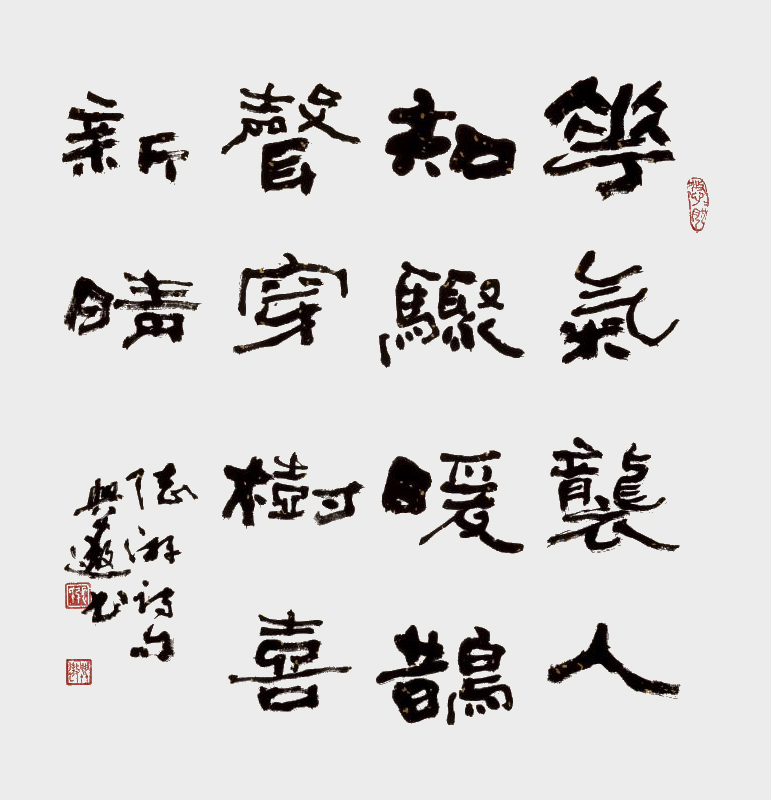 華氣襲人
知驟暖鵲
聲穿樹喜
新晴
陸游詩句
興邀书